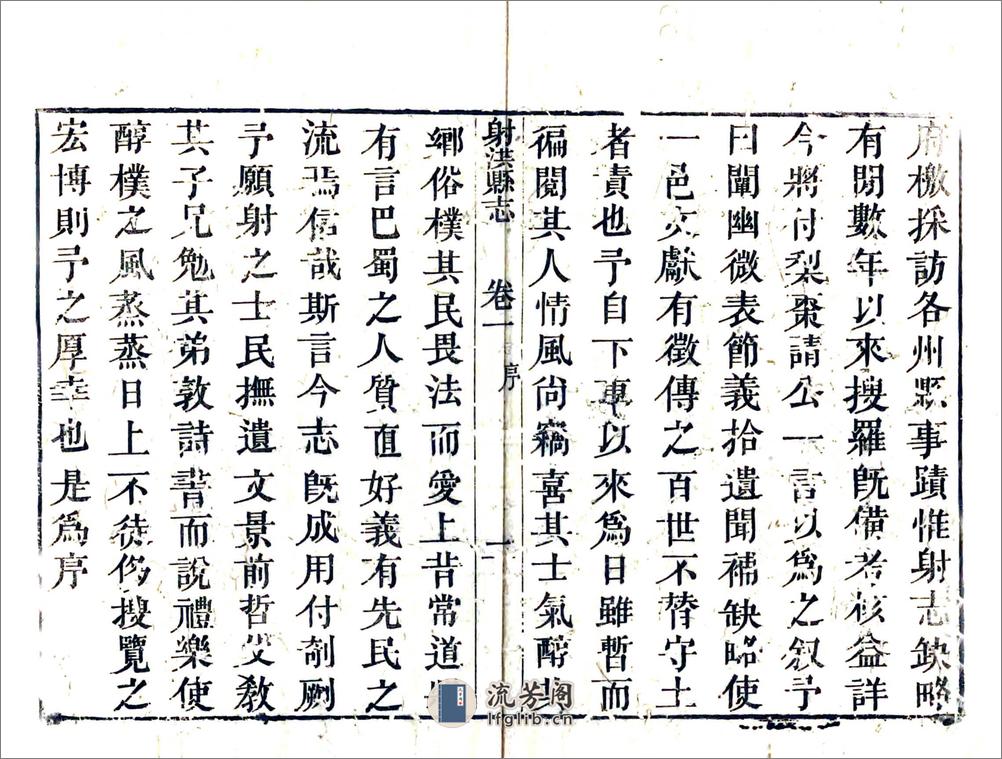 府檄採訪各州縣事蹟惟射志缺略
有閒數年以來搜羅旣備考核益詳
今將付梨棗請公一言以爲之叙予
曰闡幽微表節義拾遺聞補缺略使
一邑文獻有徵傳之百世不替守土
者責也予自下車以來爲日雖暫而
徧閱其人情風尙竊喜其士氣醇
射洪縣志 卷一 序 二
鄕俗樸其民畏法而愛上昔常道
有言巴蜀之人質直好義有先民之
流焉信哉斯言今志旣成用付剞劂
予願射之士民撫遺文景前哲父敎
其子兄勉其弟敦詩書而說禮樂使
醇樸之風蒸蒸日上不徒侈搜覽之
宏博則予之厚幸也是爲序
流芳阁
lfglib.cn